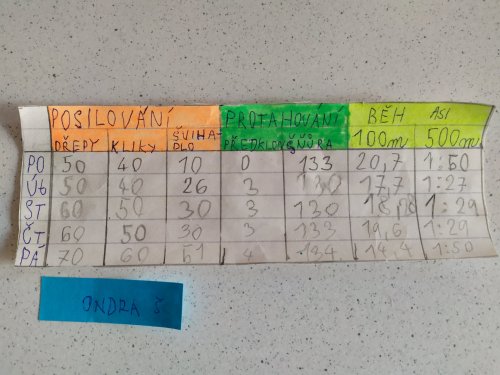 POSILOVÁNÍ PROTAHOVÁNÍ BĚH ASI
DŘEPY KLIKY ŠVIHADLO PŘEDKLON ŠŇŮRA 100m 500m
PO 50 40 10 0 133 20,7 1:50
ÚT 50 40 26 3 130 17,7 1:27
ST 60 50 30 3 130 1:29
ČT 60 50 30 3 133 19,6 1:29
PÁ 70 60 51 4 134 14,4 1:50
ONDRA Š